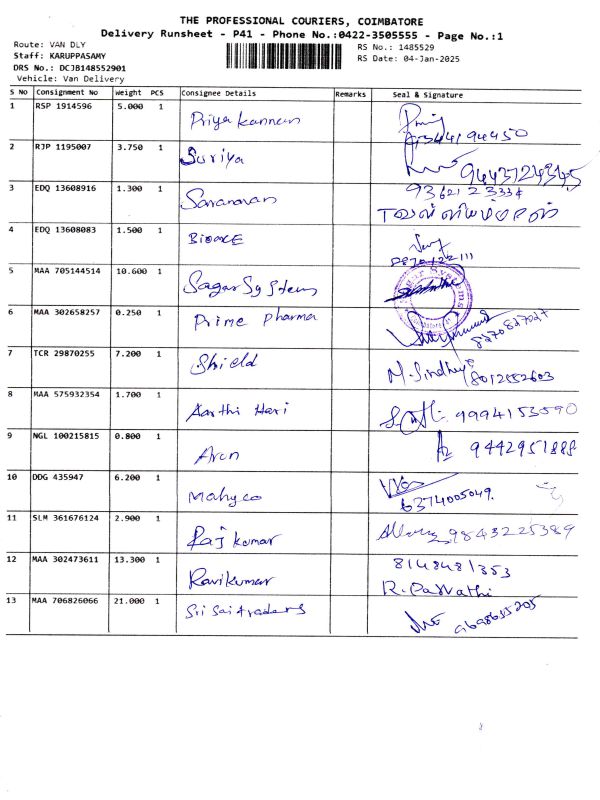 THE PROFESSIONAL COURIERS, COIMBATORE
Delivery Runsheet - P41 - Phone No.:0422-3505555 - Page No.:1
Route: VAN DLY RS No.: 1485529
Staff: KARUPPASAMY RS Date: 04-Jan-2025
DRS No.: DCJB148552901
Vehicle: Van Delivery
S No Consignment No Weight PCS Consignee Details Remarks Seal & Signature
1 RSP 1914596 5.000 1 Priya Kannan
2 RJP 1195007 3.750 1 Suriya
3 EDQ 13608916 1.300 1 Saravanan
4 EDQ 13608083 1.500 1
5 MAA 705144514 10.600 1 Sagar Systems
6 MAA 302658257 0.250 1 Prime Pharma 8270827027
7 TCR 29870255 7.200 1 Shield M. Sindhuja
8 MAA 575932354 1.700 1 Aarthi Hari 9994153590
9 NGL 100215815 0.800 1 Arun 9442951888
10 DDG 435947 6.200 1 Mahyco 6374005049.
11 SLM 361676124 2.900 1 Rajkumar 9843225389
12 MAA 302473611 13.300 1 Ravikumar 8148481353
R. Parvathi
13 MAA 706826066 21.000 1 Sri Sai traders